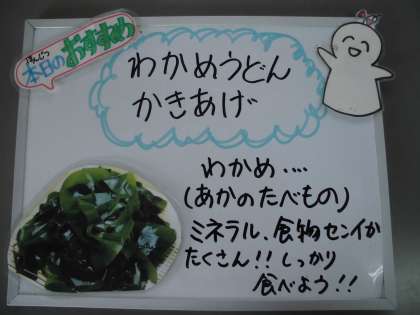 ほんじつ
本日のおすすめ
わかめうどん
かきあげ
わかめ‥‥
(あかのたべもの)
ミネラル、食物センイが
たくさん!! しっかり
食べよう!!